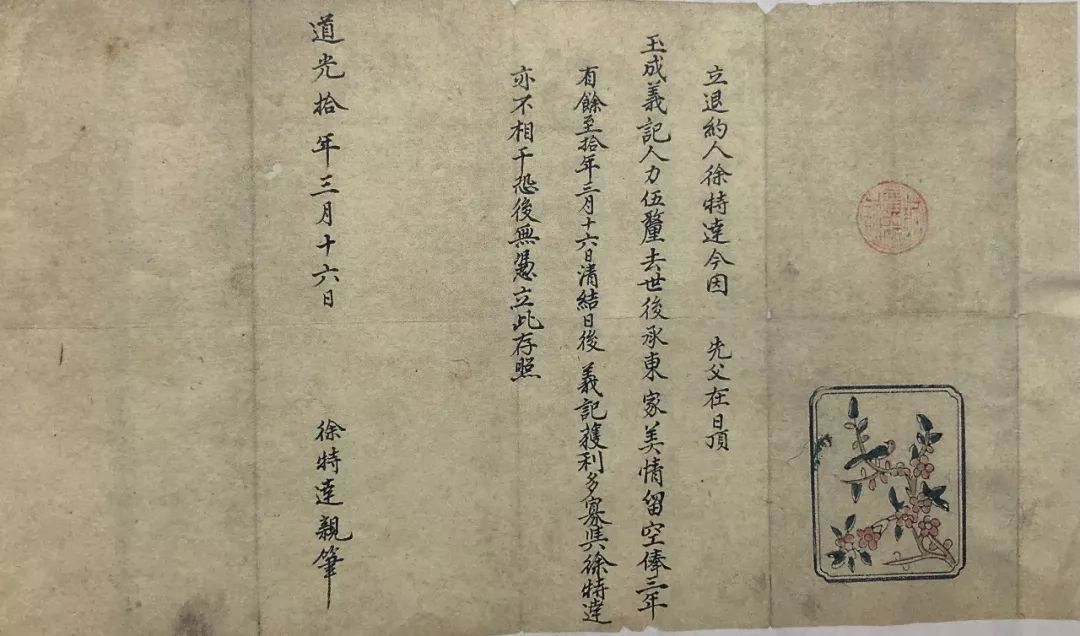 立退約人徐特達今因 先父在日頂
玉成義記人力伍釐去世後承東家美情留空俸三年
有餘至拾年三月十六日清結日後 義記獲利多寡與徐特達
亦不相干恐後無憑立此存照
道光拾年三月十六日 徐特達親筆